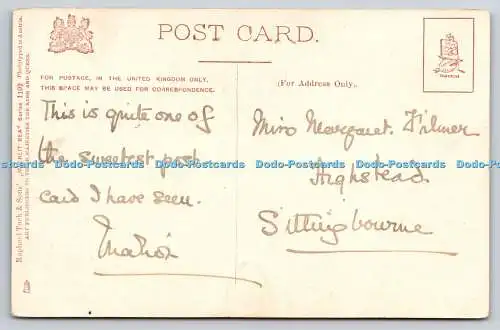 POST CARD.
FOR POSTAGE, IN THE UNITED KINGDOM ONLY,
THIS SPACE MAY BE USED FOR CORRESPONDENCE.
(For Address Only.)
This is quite one of
the sweetest post
card I have seen.
Miss Margaret Filmer
Highstead
Sittingbourne
Dodo-Postcards Dodo-Postcards Dodo-Postcards Dodo-Postcards Dodo-Postcards
Raphael Tuck & Sons' Series 1103 Phototyped in Austria.
ART PUBLISHERS TO THEIR MAJESTIES THE KING AND QUEEN.